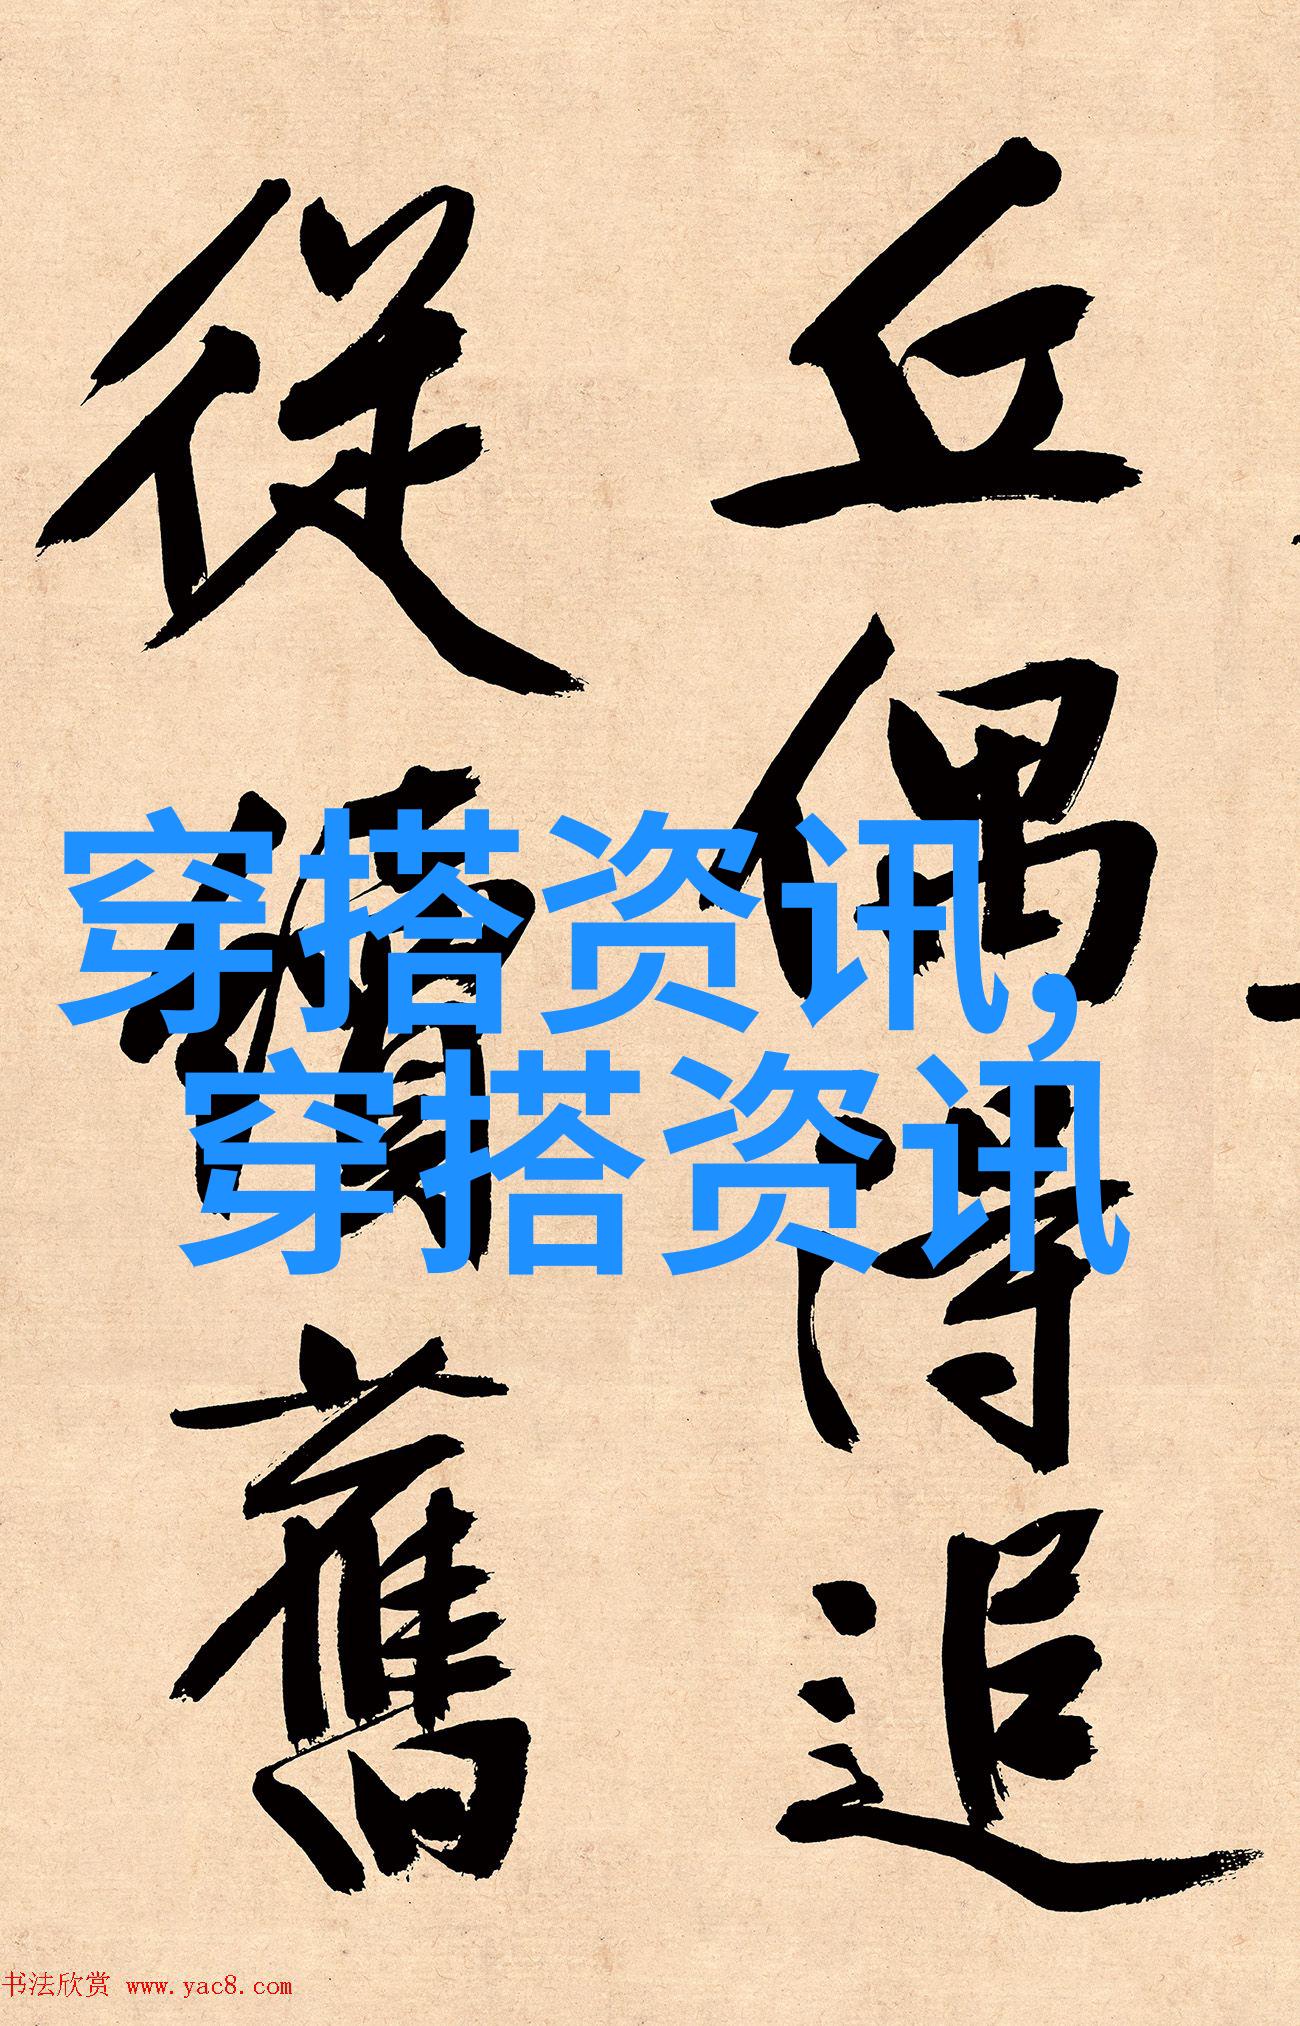 丘偶得追
從舊
穿搭资讯,
穿搭资讯
书法欣赏 www.yac8.com